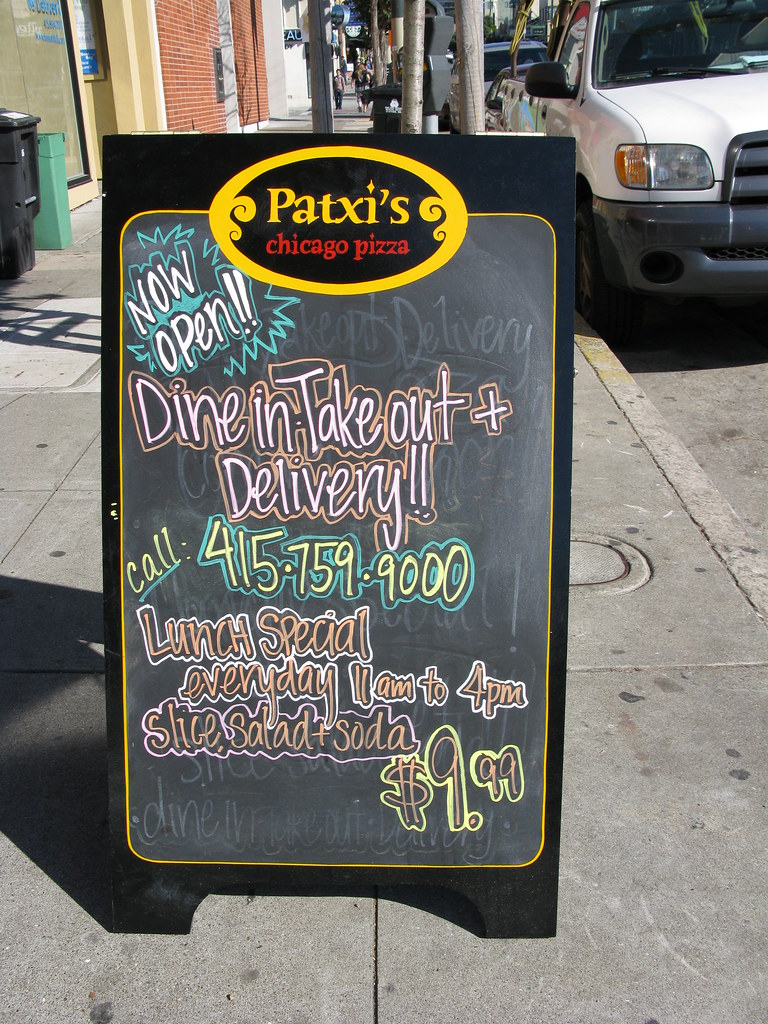 Patxi's
chicago pizza
NOW
OPen!!
Dine in·Take out +
Delivery!!
call: 415·759·9000
Lunch Special
everyday 11am to 4pm
Slice, Salad + soda
$9.99
dine in·Take out·Delivery